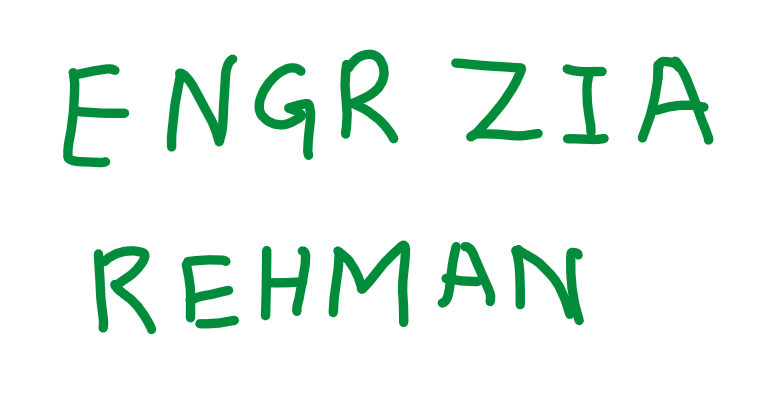 ENGR ZIA
REHMAN